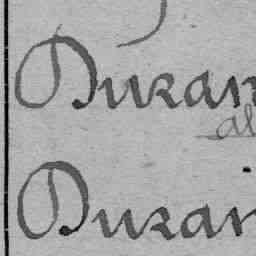 Duran
al
Duran